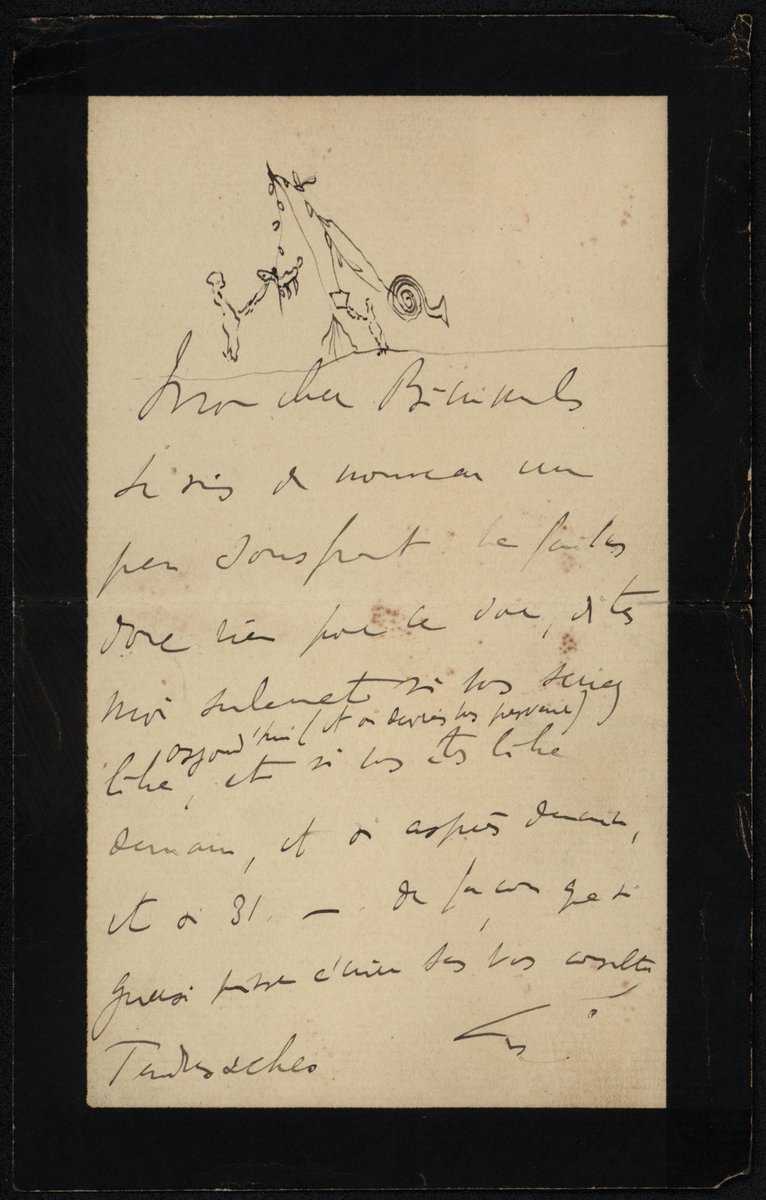 Mon cher Bininuls
Je suis de nouveau un
peu souffrant Ne faites
donc rien pour ce soir, dites
moi seulement si vous seriez
aujourd'hui (et si devrais vous prévenir)
libre, et si vous êtes libre
demain, et si après demain,
et si 31. — de façon que si
guéri puisse écrire sans vous consulter
Tendresses